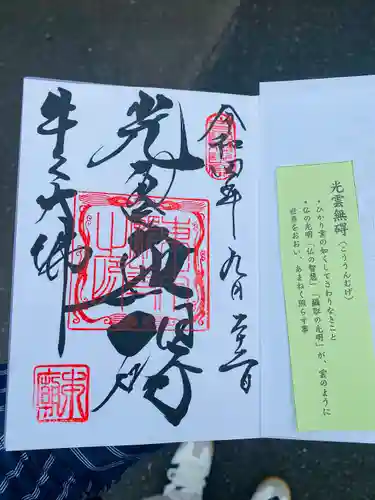 令和四年 九月 廿三日
光雲無碍
牛久大佛
光雲無碍(こううんむげ)
・ひかり雲の如くしてさわりなきこと
・仏の光明「仏の智慧」「摂取の光明」が、雲のように
世界をおおい、あまねく照らす事